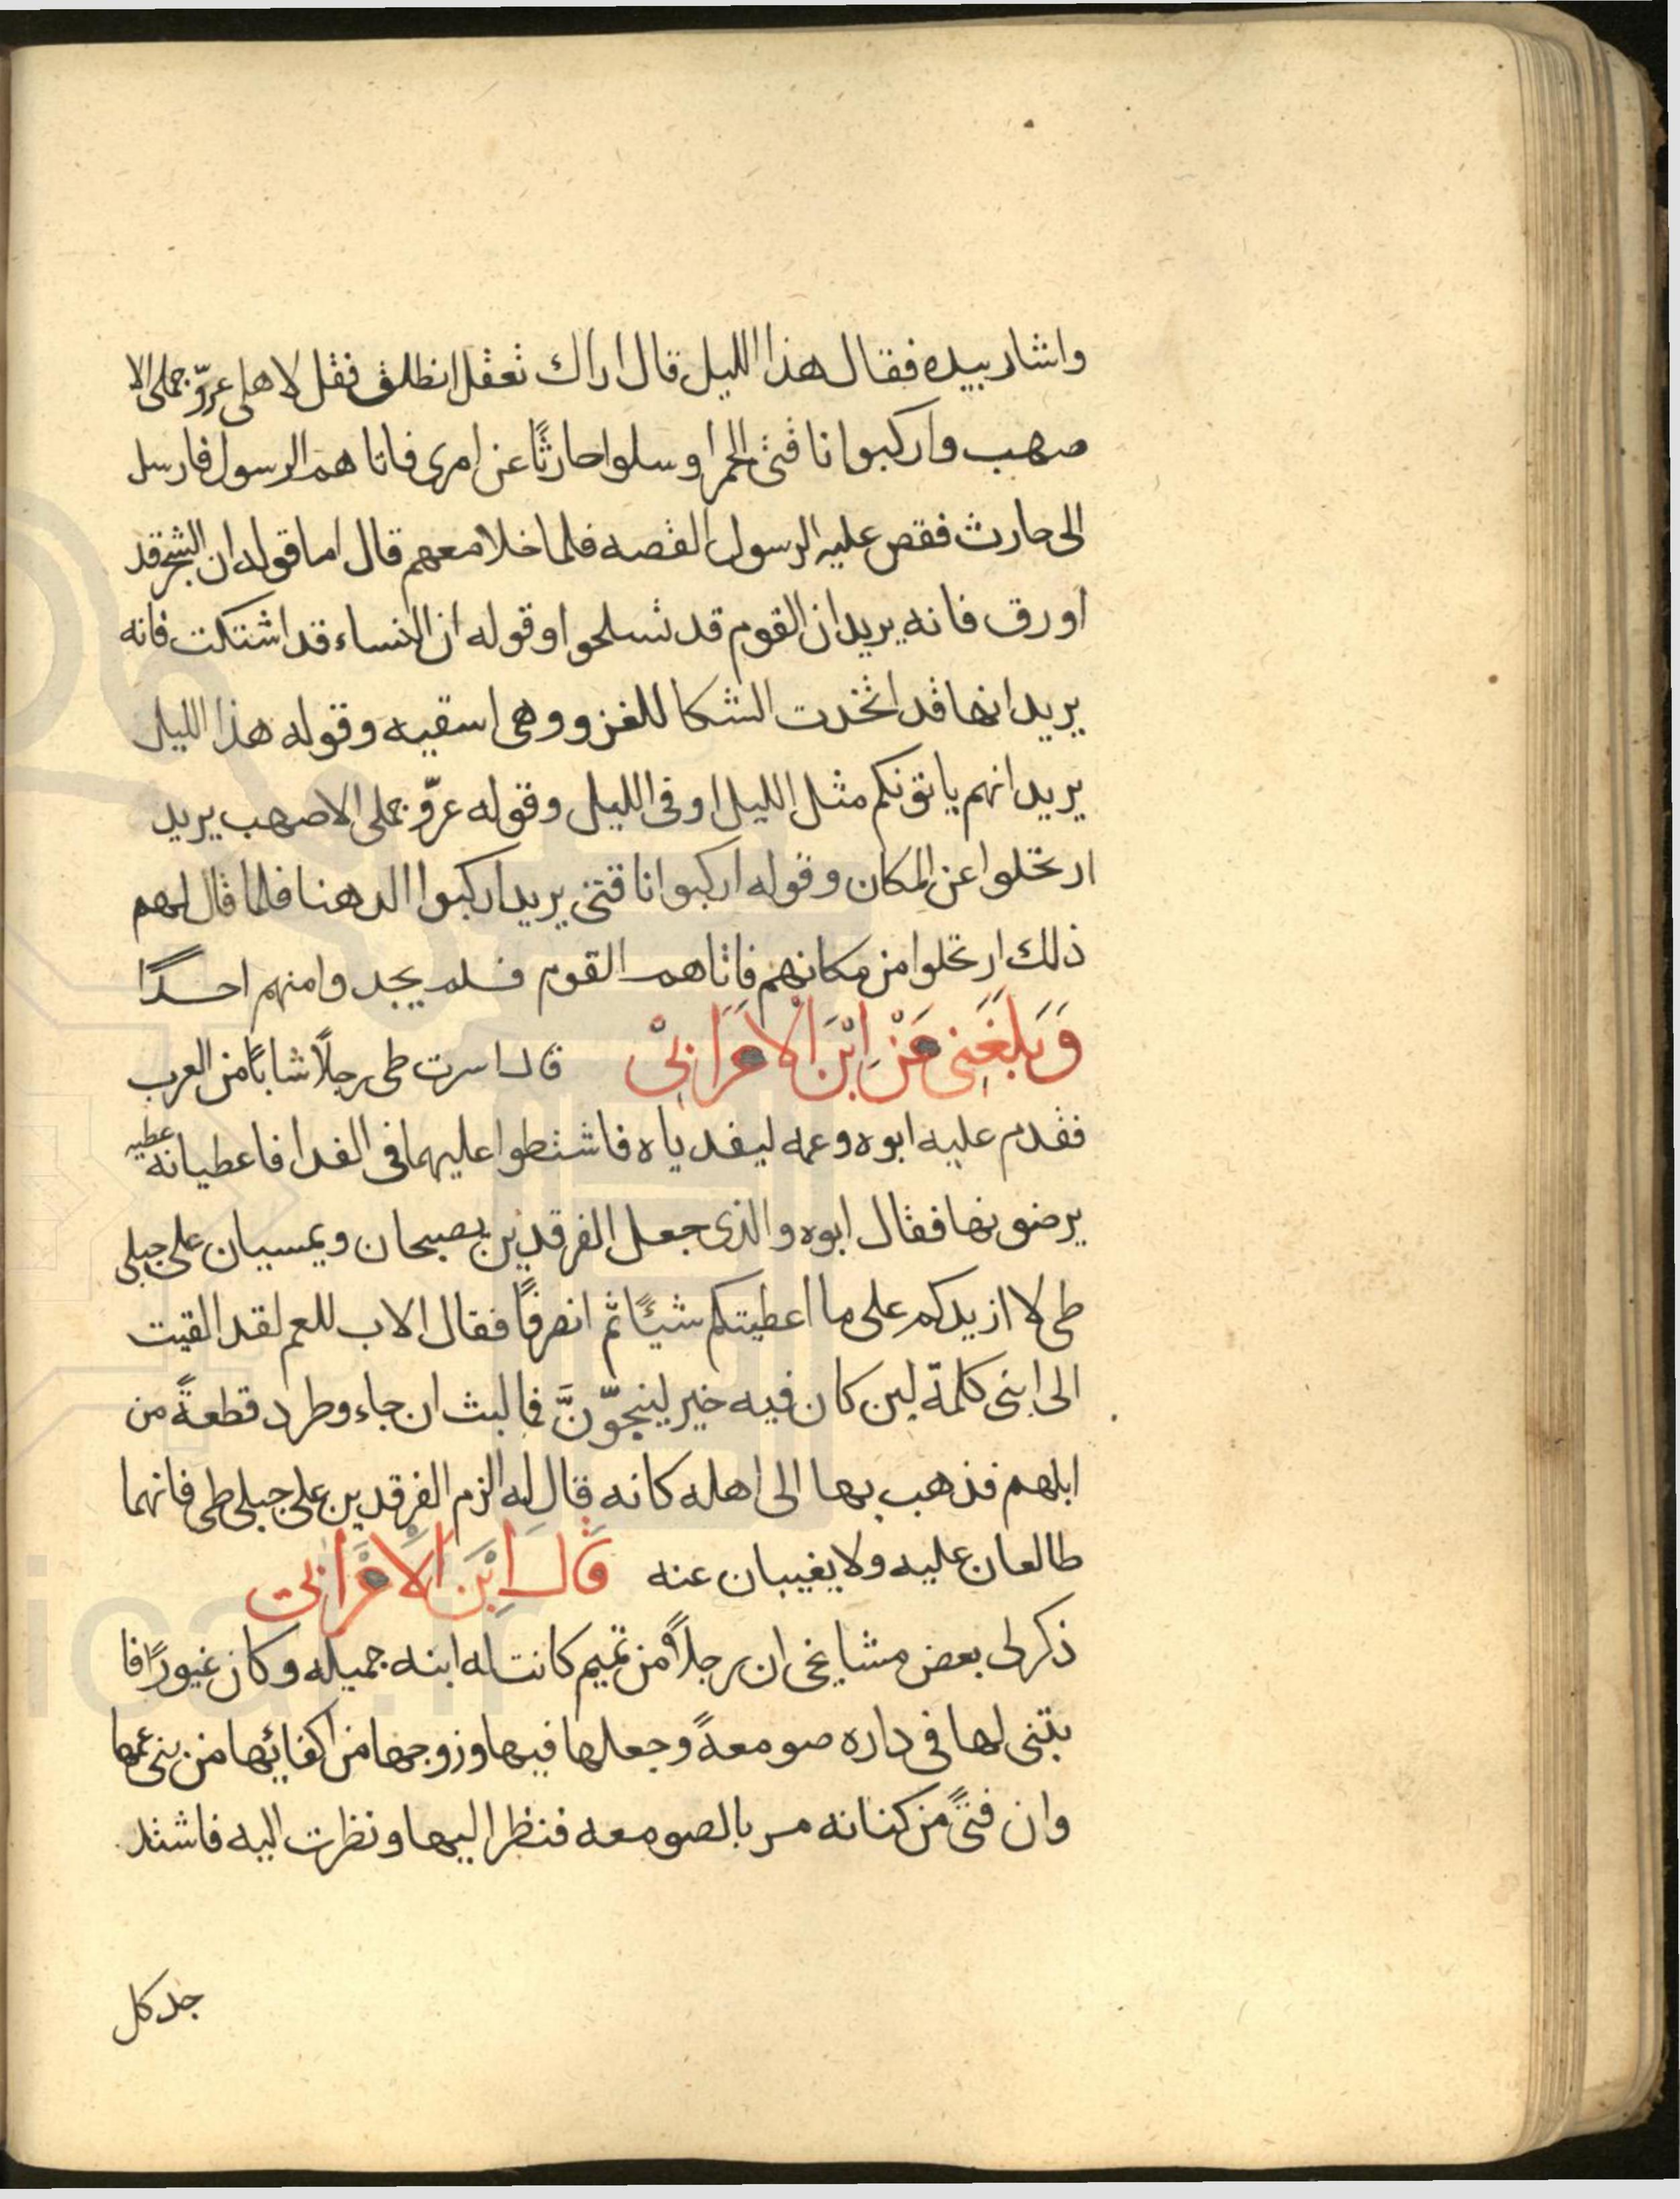 واشار بيده فقال هذا الليل قال اراك تعقل انطلق فقل لاهلى عرّو جملى الا
صهب واركبوا ناقتى الحمرا وسلوا حارثًا عن امرى فاتاهم الرسول فارسل
الى حارث فقص عليه الرسول القصه فلما خلا معهم قال اما قوله ان الشجر قد
اورق فانه يريد ان القوم قد تسلحوا وقوله ان النساء قد اشتكت فانه
يريد انها قد اتخذت الشكا للغزو وهى اسقيه وقوله هذا الليل
يريد انهم ياتونكم مثل الليل او فى الليل وقوله عرّو جملى الاصهب يريد
ارتحلوا عن المكان وقوله اركبوا ناقتى يريد اركبوا الدهنا فلما قال لهم
ذلك ارتحلوا من مكانهم فاتاهم القوم فلم يجدوا منهم احدًا
وَبَلَغَنِى عَنْ اِبْنِ الْاَعْرَابِىْ قال اسرت طى رجلًا شابًا من العرب
فقدم عليه ابوه وعمه ليفدياه فاشتطوا عليهما فى الفدا فاعطيانه عطيه
يرضونها فقال ابوه والذى جعل الفرقدين يصبحان ويمسيان على جبلى
طى لا ازيدكم على ما اعطيتكم شيئًا ثم انصرفًا فقال الاب للعم لقد القيت
الى ابنى كلمة لين كان فيه خير لينجوّنَّ فما لبث ان جاء وطرد قطعةً من
ابلهم فذهب بها الى اهله كانه قال له الزم الفرقدين على جبلى طى فانهما
طالعان عليه ولا يغيبان عنه قَالَ اِبْنَ الْاَعْرَابى
ذكر لى بعض مشايخى ان رجلًا من تميم كانت له ابنه جميله وكان غيورًا فا
بتنى لها فى داره صومعةً وجعلها فيها وزوجها من اكفائها من بنى عمها
وان فتىً من كنانه مر بالصومعه فنظر اليها ونظرت اليه فاشتد
جد كل